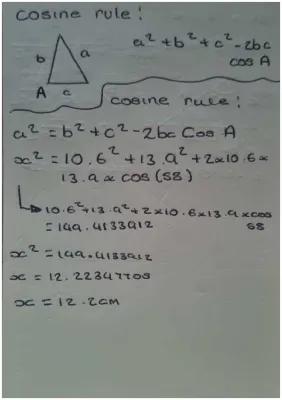 cosine rule!
a²+b²+c²-2bc
cos A
b
a
A
c
cosine rule!
a² = b² + c² - 2bc Cos A
x² = 10.6² + 13.9² + 2x10.6x
13.9 x cos (58)
10.6² + 13.9² + 2x10.6x13.9xcos
58
= 149.4133912
x² = 149.4133912
x = 12.22347705
x = 12.2cm